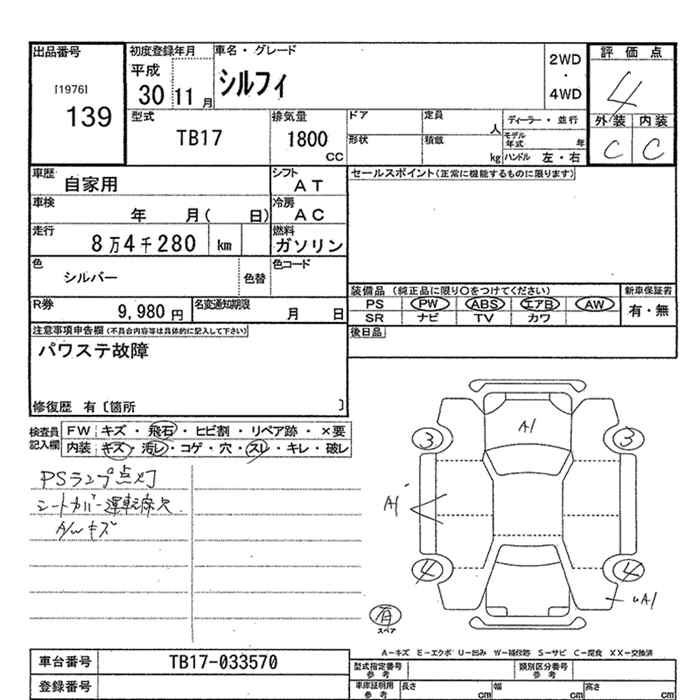 出品番号
[1976]
139
初度登録年月
平成
30 11 月
車名・グレード
シルフィ
2WD
・
4WD
評価点
4
外装 内装
C C
型式
TB17
排気量
1800
CC
ドア
定員
人
形状
積載
kg
ディーラー・並行
モデル年式
年
ハンドル 左・右
車歴
自家用
シフト
AT
セールスポイント(正常に機能するものに限ります)
車検
年 月( 日)
冷房
AC
走行
8万4千280 km
燃料
ガソリン
色
シルバー
色替
色コード
装備品 (純正品に限り○をつけてください)
新車保証書
PS PW ABS エアB AW
SR ナビ TV カワ
有・無
R券
9,980 円
名変通知期限
月 日
後日品
注意事項申告欄(不具合内容等は具体的に記入して下さい)
パワステ故障
修復歴 有〔箇所 〕
検査員
記入欄
FW キズ・飛石・ヒビ割・リペア跡・×要
内装 キズ・汚レ・コゲ・穴・スレ・キレ・破レ
PSランプ点灯
シートカバー運転席穴
A/wキズ
A1
3
3
A1
4
4
uA1
有
スペア
A-キズ E-エクボ U-凹み W-補修跡 S-サビ C-腐食 XX-交換済
車台番号
TB17-033570
型式指定番号
参考
類別区分番号
参考
登録番号
車庫証明用
参考
長さ cm
幅 cm
高さ cm